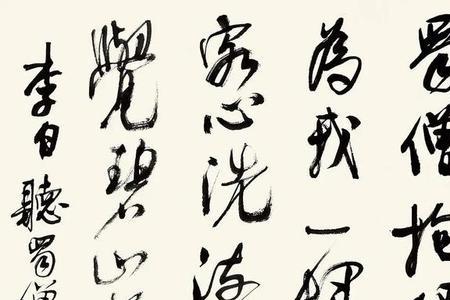 蜀僧抱
為我一揮
客心洗流
覺碧山
李白聽蜀僧